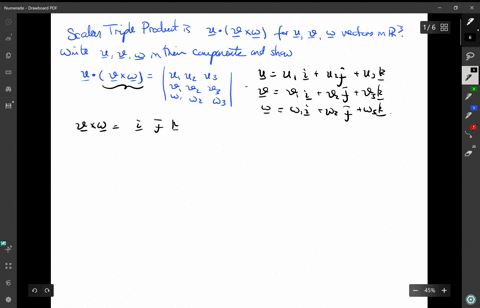 Numerade - Drawboard PDF
Scalar Triple Product is u • (v × w) for u, v, w vectors in R³.
Write u, v, w in their components and show
u • (v × w) = | u₁ u₂ u₃ |
| v₁ v₂ v₃ |
| w₁ w₂ w₃ |
u = u₁ i + u₂ j + u₃ k
v = v₁ i + v₂ j + v₃ k
w = w₁ i + w₂ j + w₃ k.
v × w = i j k
1/6
6
− 45% +